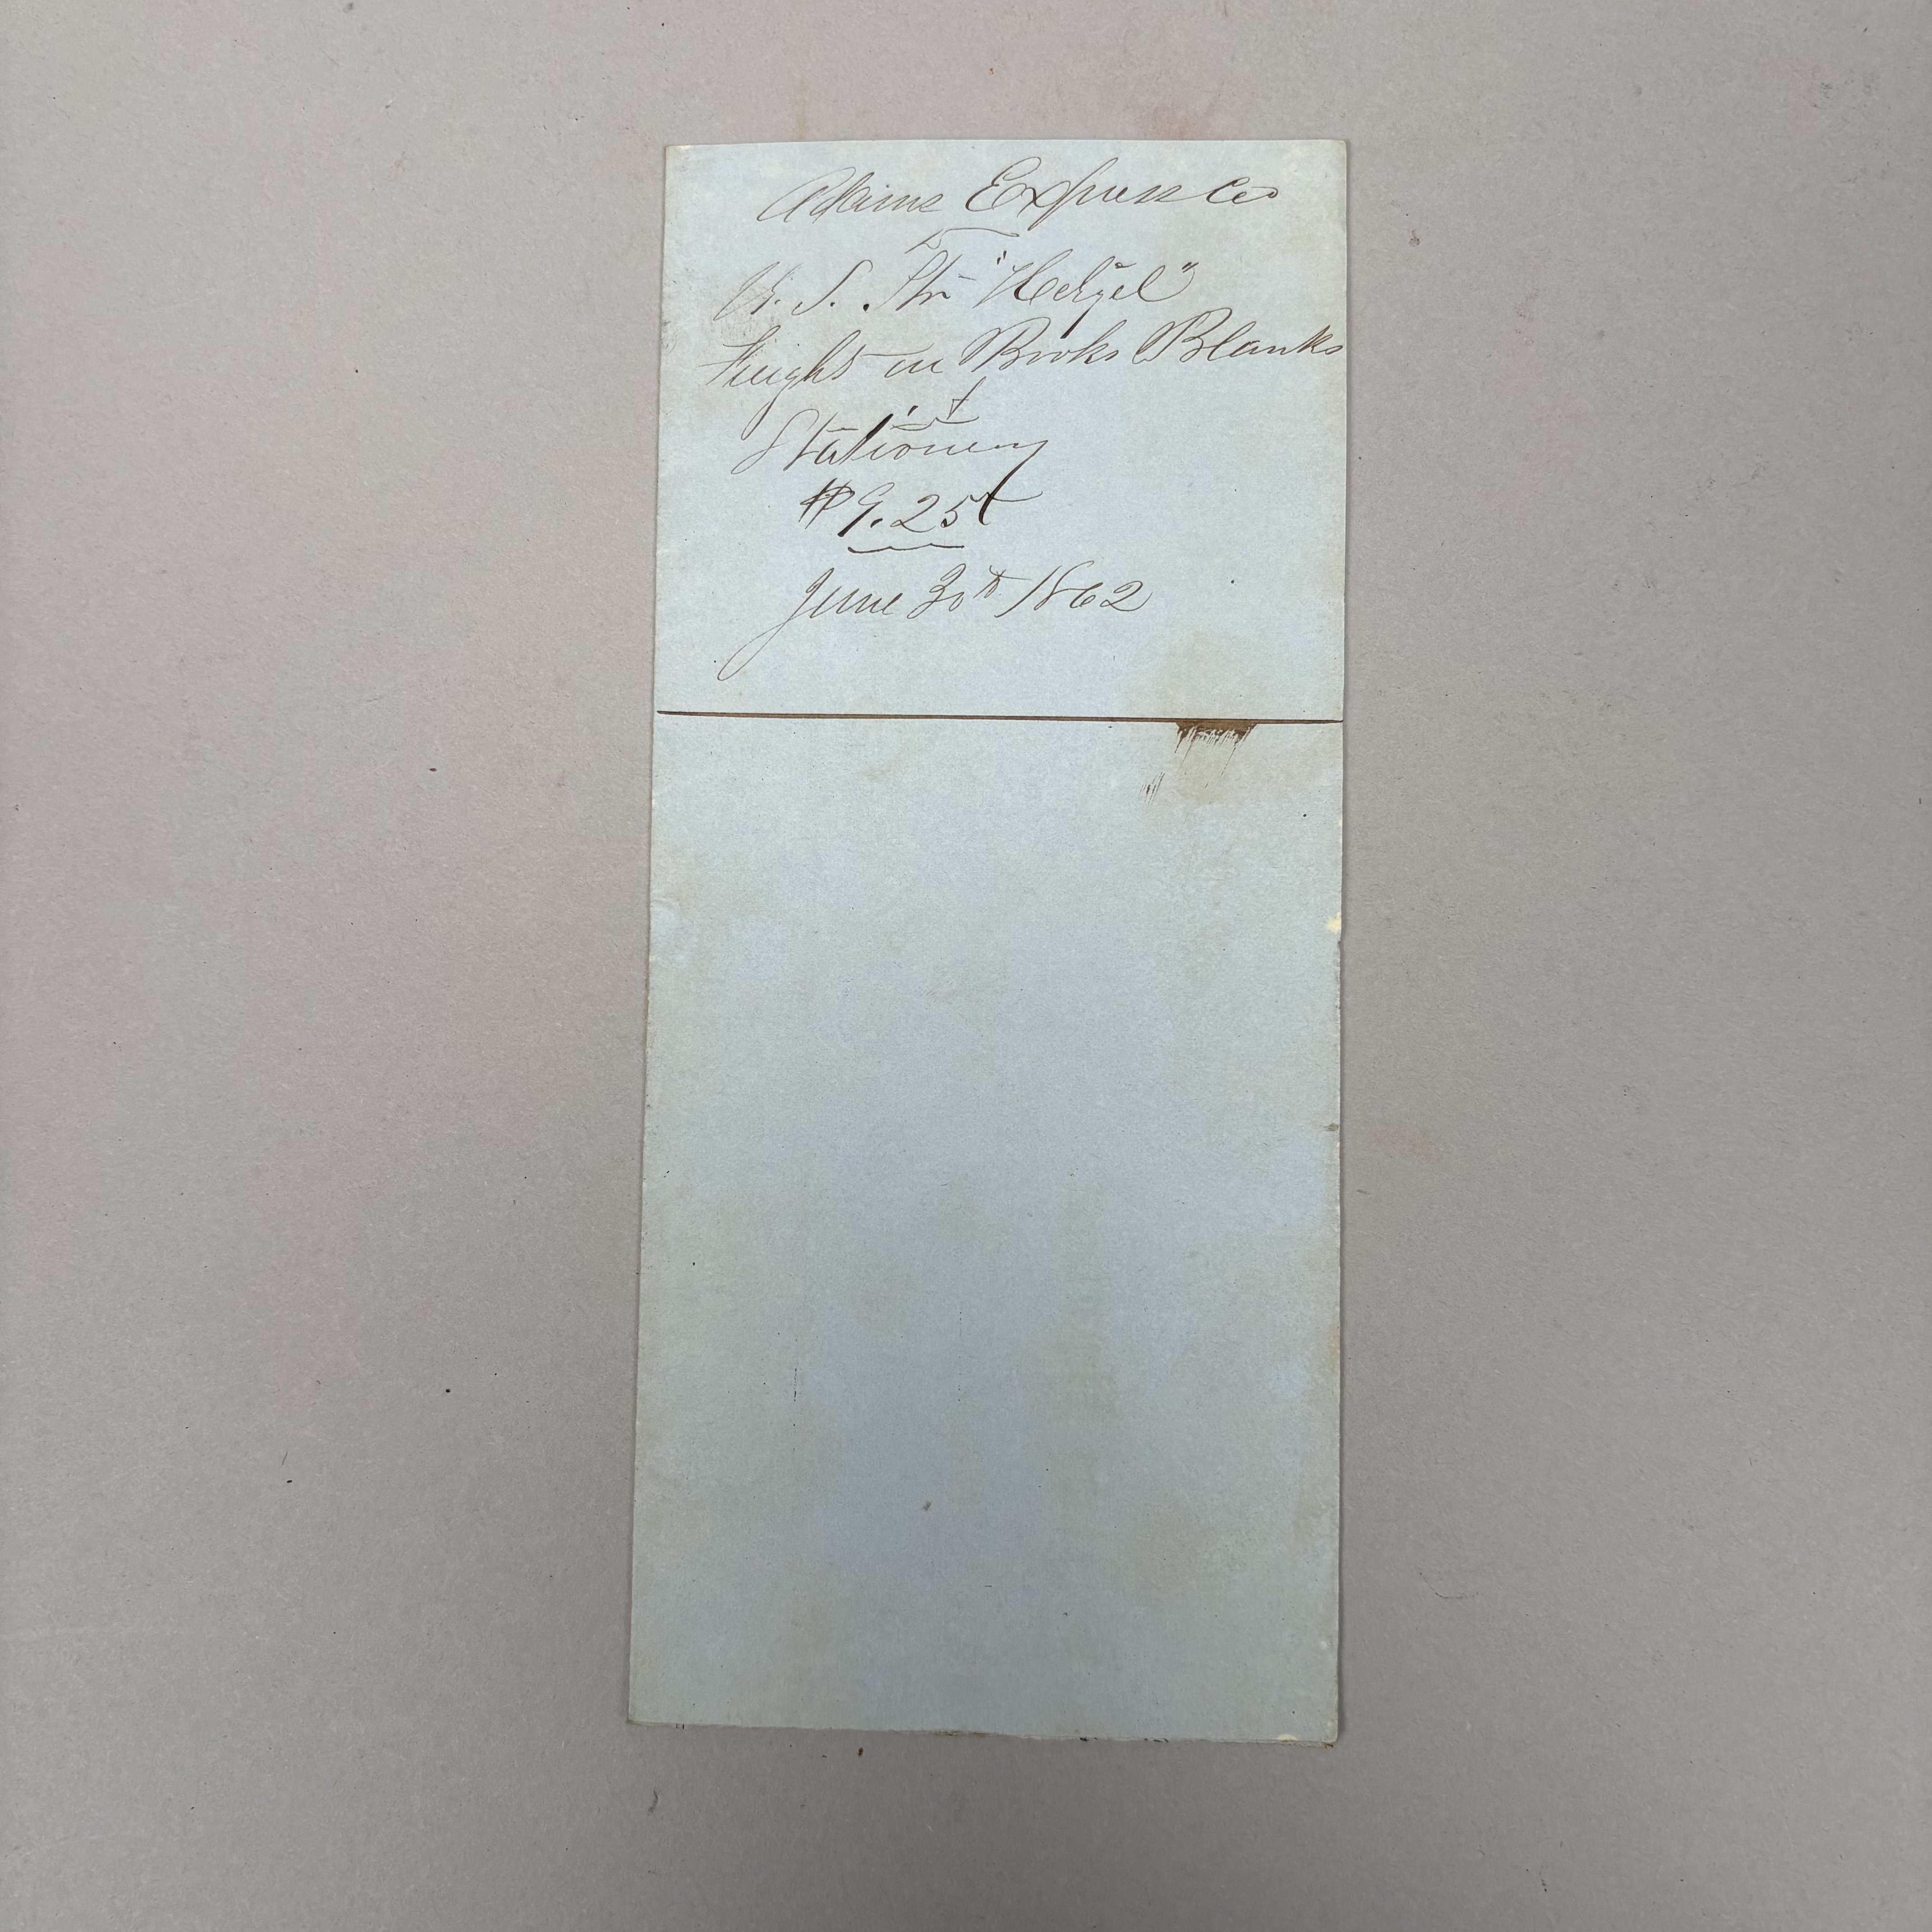 Adams Express Co
U. S. Str "Hetzel"
Freight on Books Blanks
&
Stationery
$9.25
June 30th 1862